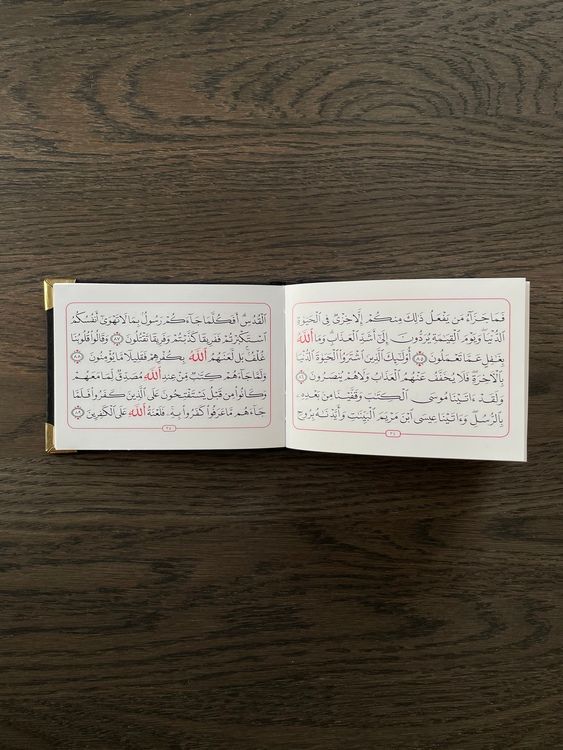 فَمَا جَزَآءُ مَن يَفْعَلُ ذَٰلِكَ مِنكُمْ إِلَّا خِزْىٌ فِى ٱلْحَيَوٰةِ
ٱلدُّنْيَا ۖ وَيَوْمَ ٱلْقِيَٰمَةِ يُرَدُّونَ إِلَىٰٓ أَشَدِّ ٱلْعَذَابِ ۗ وَمَا ٱللَّهُ
بِغَٰفِلٍ عَمَّا تَعْمَلُونَ ٨٥ أُو۟لَٰٓئِكَ ٱلَّذِينَ ٱشْتَرَوُا۟ ٱلْحَيَوٰةَ ٱلدُّنْيَا
بِٱلْءَاخِرَةِ ۖ فَلَا يُخَفَّفُ عَنْهُمُ ٱلْعَذَابُ وَلَا هُمْ يُنصَرُونَ ٨٦
وَلَقَدْ ءَاتَيْنَا مُوسَى ٱلْكِتَٰبَ وَقَفَّيْنَا مِنۢ بَعْدِهِۦ
بِٱلرُّسُلِ ۖ وَءَاتَيْنَا عِيسَى ٱبْنَ مَرْيَمَ ٱلْبَيِّنَٰتِ وَأَيَّدْنَٰهُ بِرُوحِ
ٱلْقُدُسِ ۗ أَفَكُلَّمَا جَآءَكُمْ رَسُولٌۢ بِمَا لَا تَهْوَىٰٓ أَنفُسُكُمُ
ٱسْتَكْبَرْتُمْ فَفَرِيقًا كَذَّبْتُمْ وَفَرِيقًا تَقْتُلُونَ ٨٧ وَقَالُوا۟ قُلُوبُنَا
غُلْفٌۢ ۚ بَل لَّعَنَهُمُ ٱللَّهُ بِكُفْرِهِمْ فَقَلِيلًا مَّا يُؤْمِنُونَ ٨٨
وَلَمَّا جَآءَهُمْ كِتَٰبٌ مِّنْ عِندِ ٱللَّهِ مُصَدِّقٌ لِّمَا مَعَهُمْ
وَكَانُوا۟ مِن قَبْلُ يَسْتَفْتِحُونَ عَلَى ٱلَّذِينَ كَفَرُوا۟ فَلَمَّا
جَآءَهُم مَّا عَرَفُوا۟ كَفَرُوا۟ بِهِۦ ۚ فَلَعْنَةُ ٱللَّهِ عَلَى ٱلْكَٰفِرِينَ ٨٩